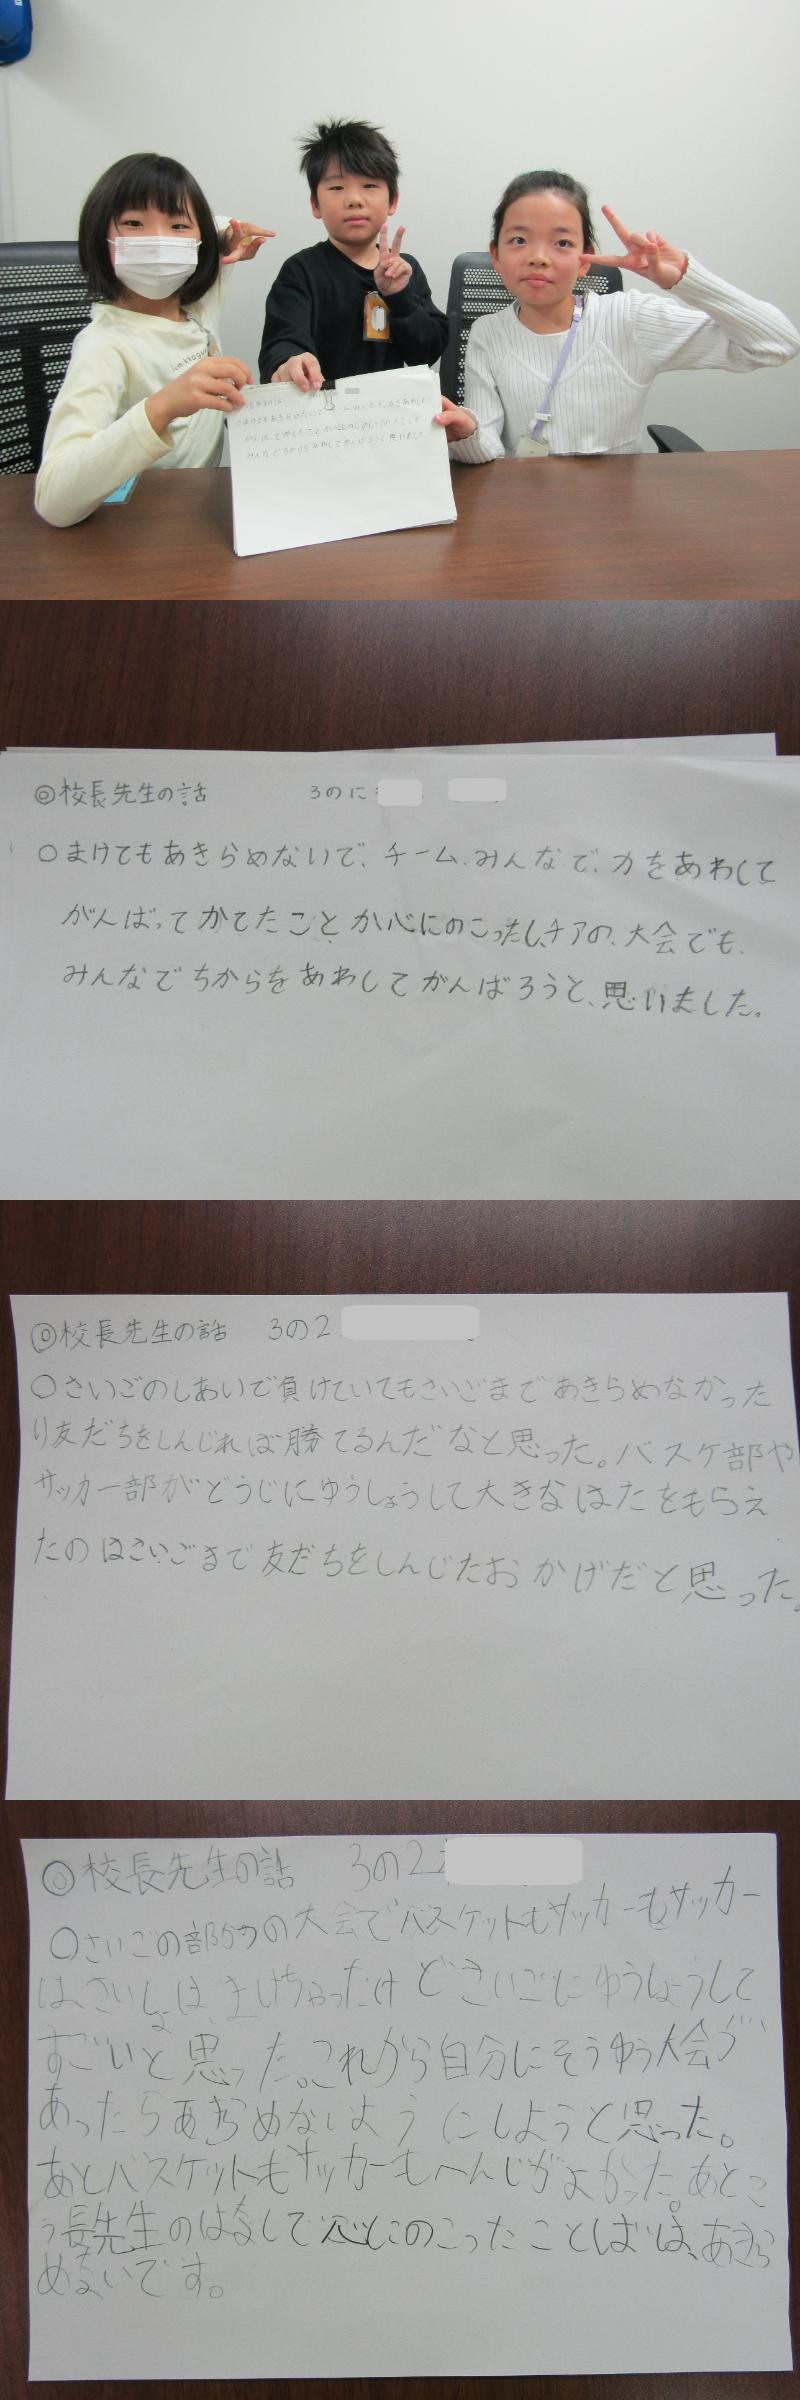 ◎校長先生の話 3のに
○まけてもあきらめないで、チーム、みんなで、力をあわして
がんばってかてたことが心にのこったし、チアの、大会でも、
みんなでちからをあわしてがんばろうと、思いました。
◎校長先生の話 3の2
○さいごのしあいで負けていてもさいごまであきらめなかった
り友だちをしんじれば勝てるんだなと思った。バスケ部や
サッカー部がどうじにゆうしょうして大きなはたをもらえ
たのはさいごまで友だちをしんじたおかげだと思った。
◎校長先生の話 3の2
○さいごの部かつの大会でバスケットもサッカーもサッカー
は、さいしょは、まけちゃったけどさいごにゆうしょうして
すごいと思った。これから自分にそうゆう大会が
あったらあきらめないようにしようと思った。
あとバスケットもサッカーもへんじがよかった。あとこ
う長先生のはなしで心にのこったことばは、あきら
めないです。